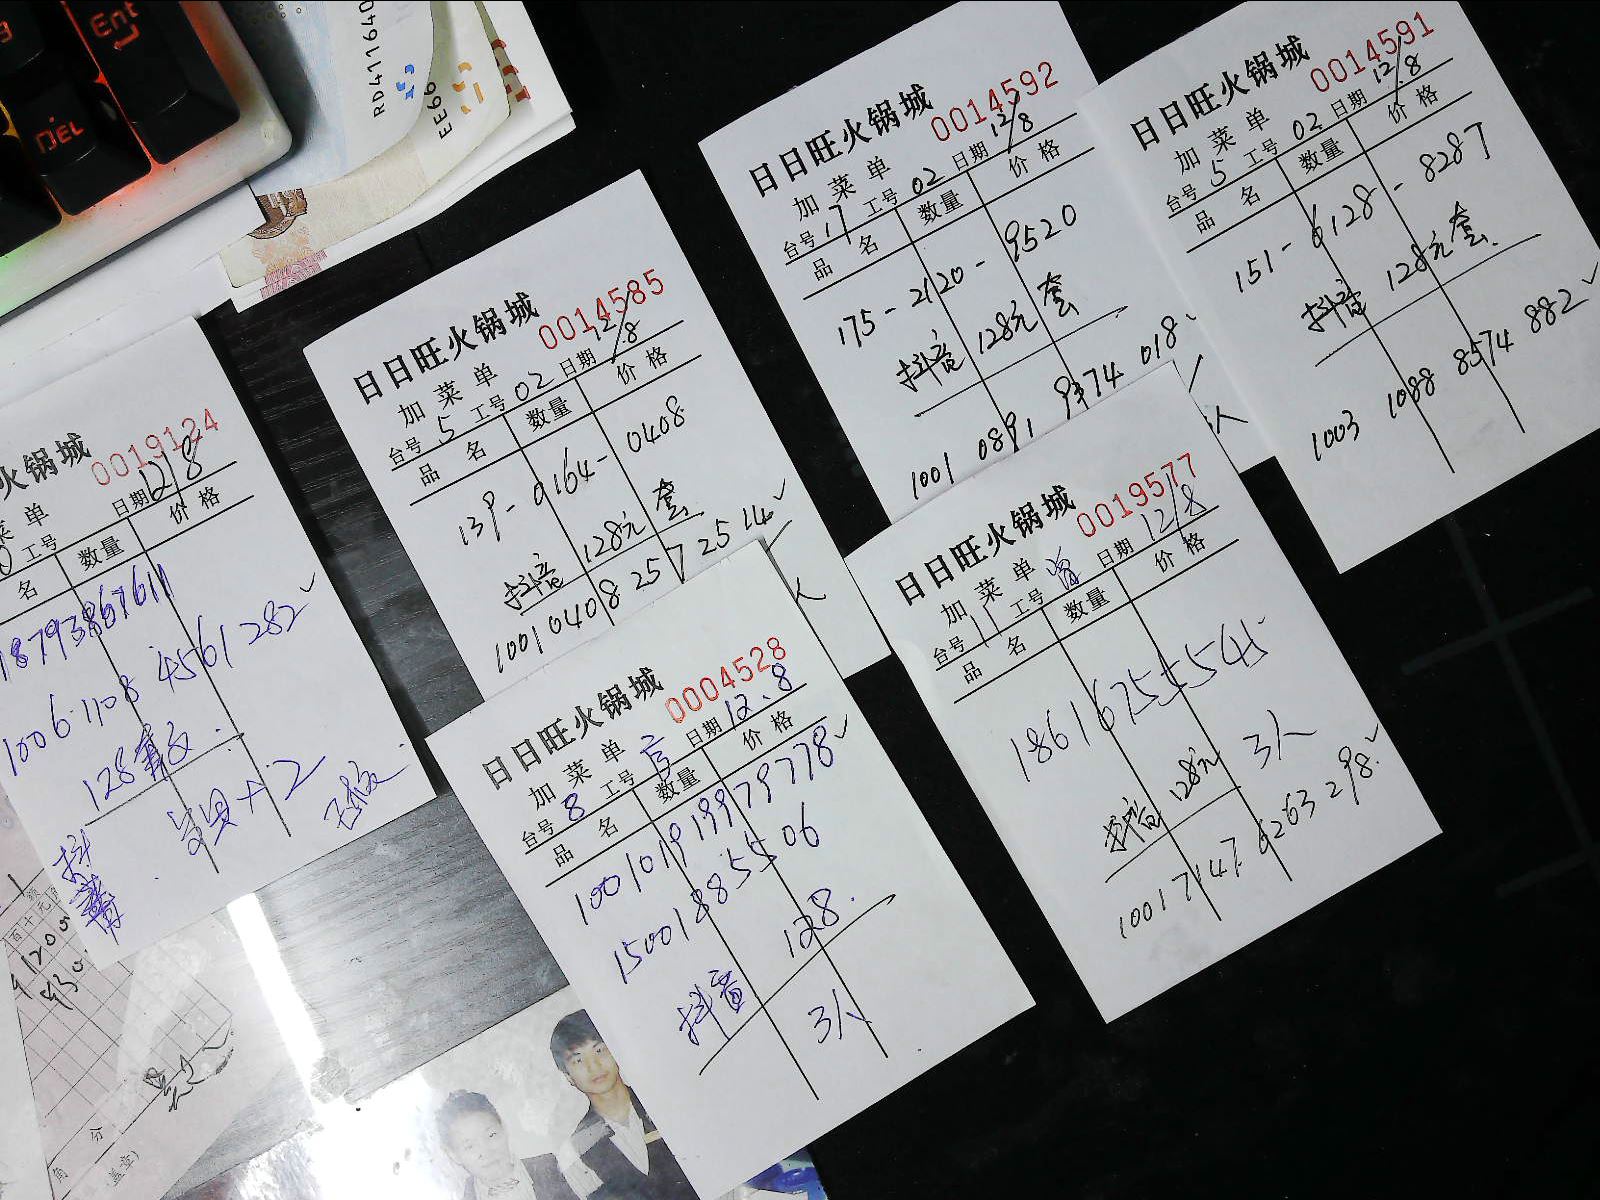 Ent
DEL
RD411640
EE66
日日旺火锅城
0014592
加菜单
台号 17 工号 02 日期 12/8
品名 数量 价格
175-2120-9520
抖音 128元 套
1001 0891 9374 018
日日旺火锅城
0014591
加菜单
台号 5 工号 02 日期 12/8
品名 数量 价格
151-6128-8287
抖音 128元 套
1003 1088 8574 882
日日旺火锅城
0014585
加菜单
台号 5 工号 02 日期 12/8
品名 数量 价格
139-0164-0408
抖音 128元 套
1001 0408 257 25 14
人
火锅城
0019124
菜单
工号 日期 12/8
名 数量 价格
18793867611
1006 1108 4561 282
128套
+2
抖
日日旺火锅城
0004528
加菜单
台号 8 工号 日期 12.8
品名 数量 价格
100101919979778
15001885506
抖音 128
3人
日日旺火锅城
0019577
加菜单
台号 11 工号 日期 12/8
品名 数量 价格
18616755545
抖音 128元 3人
10017147 6263 298
百十元
角 分
盖章)